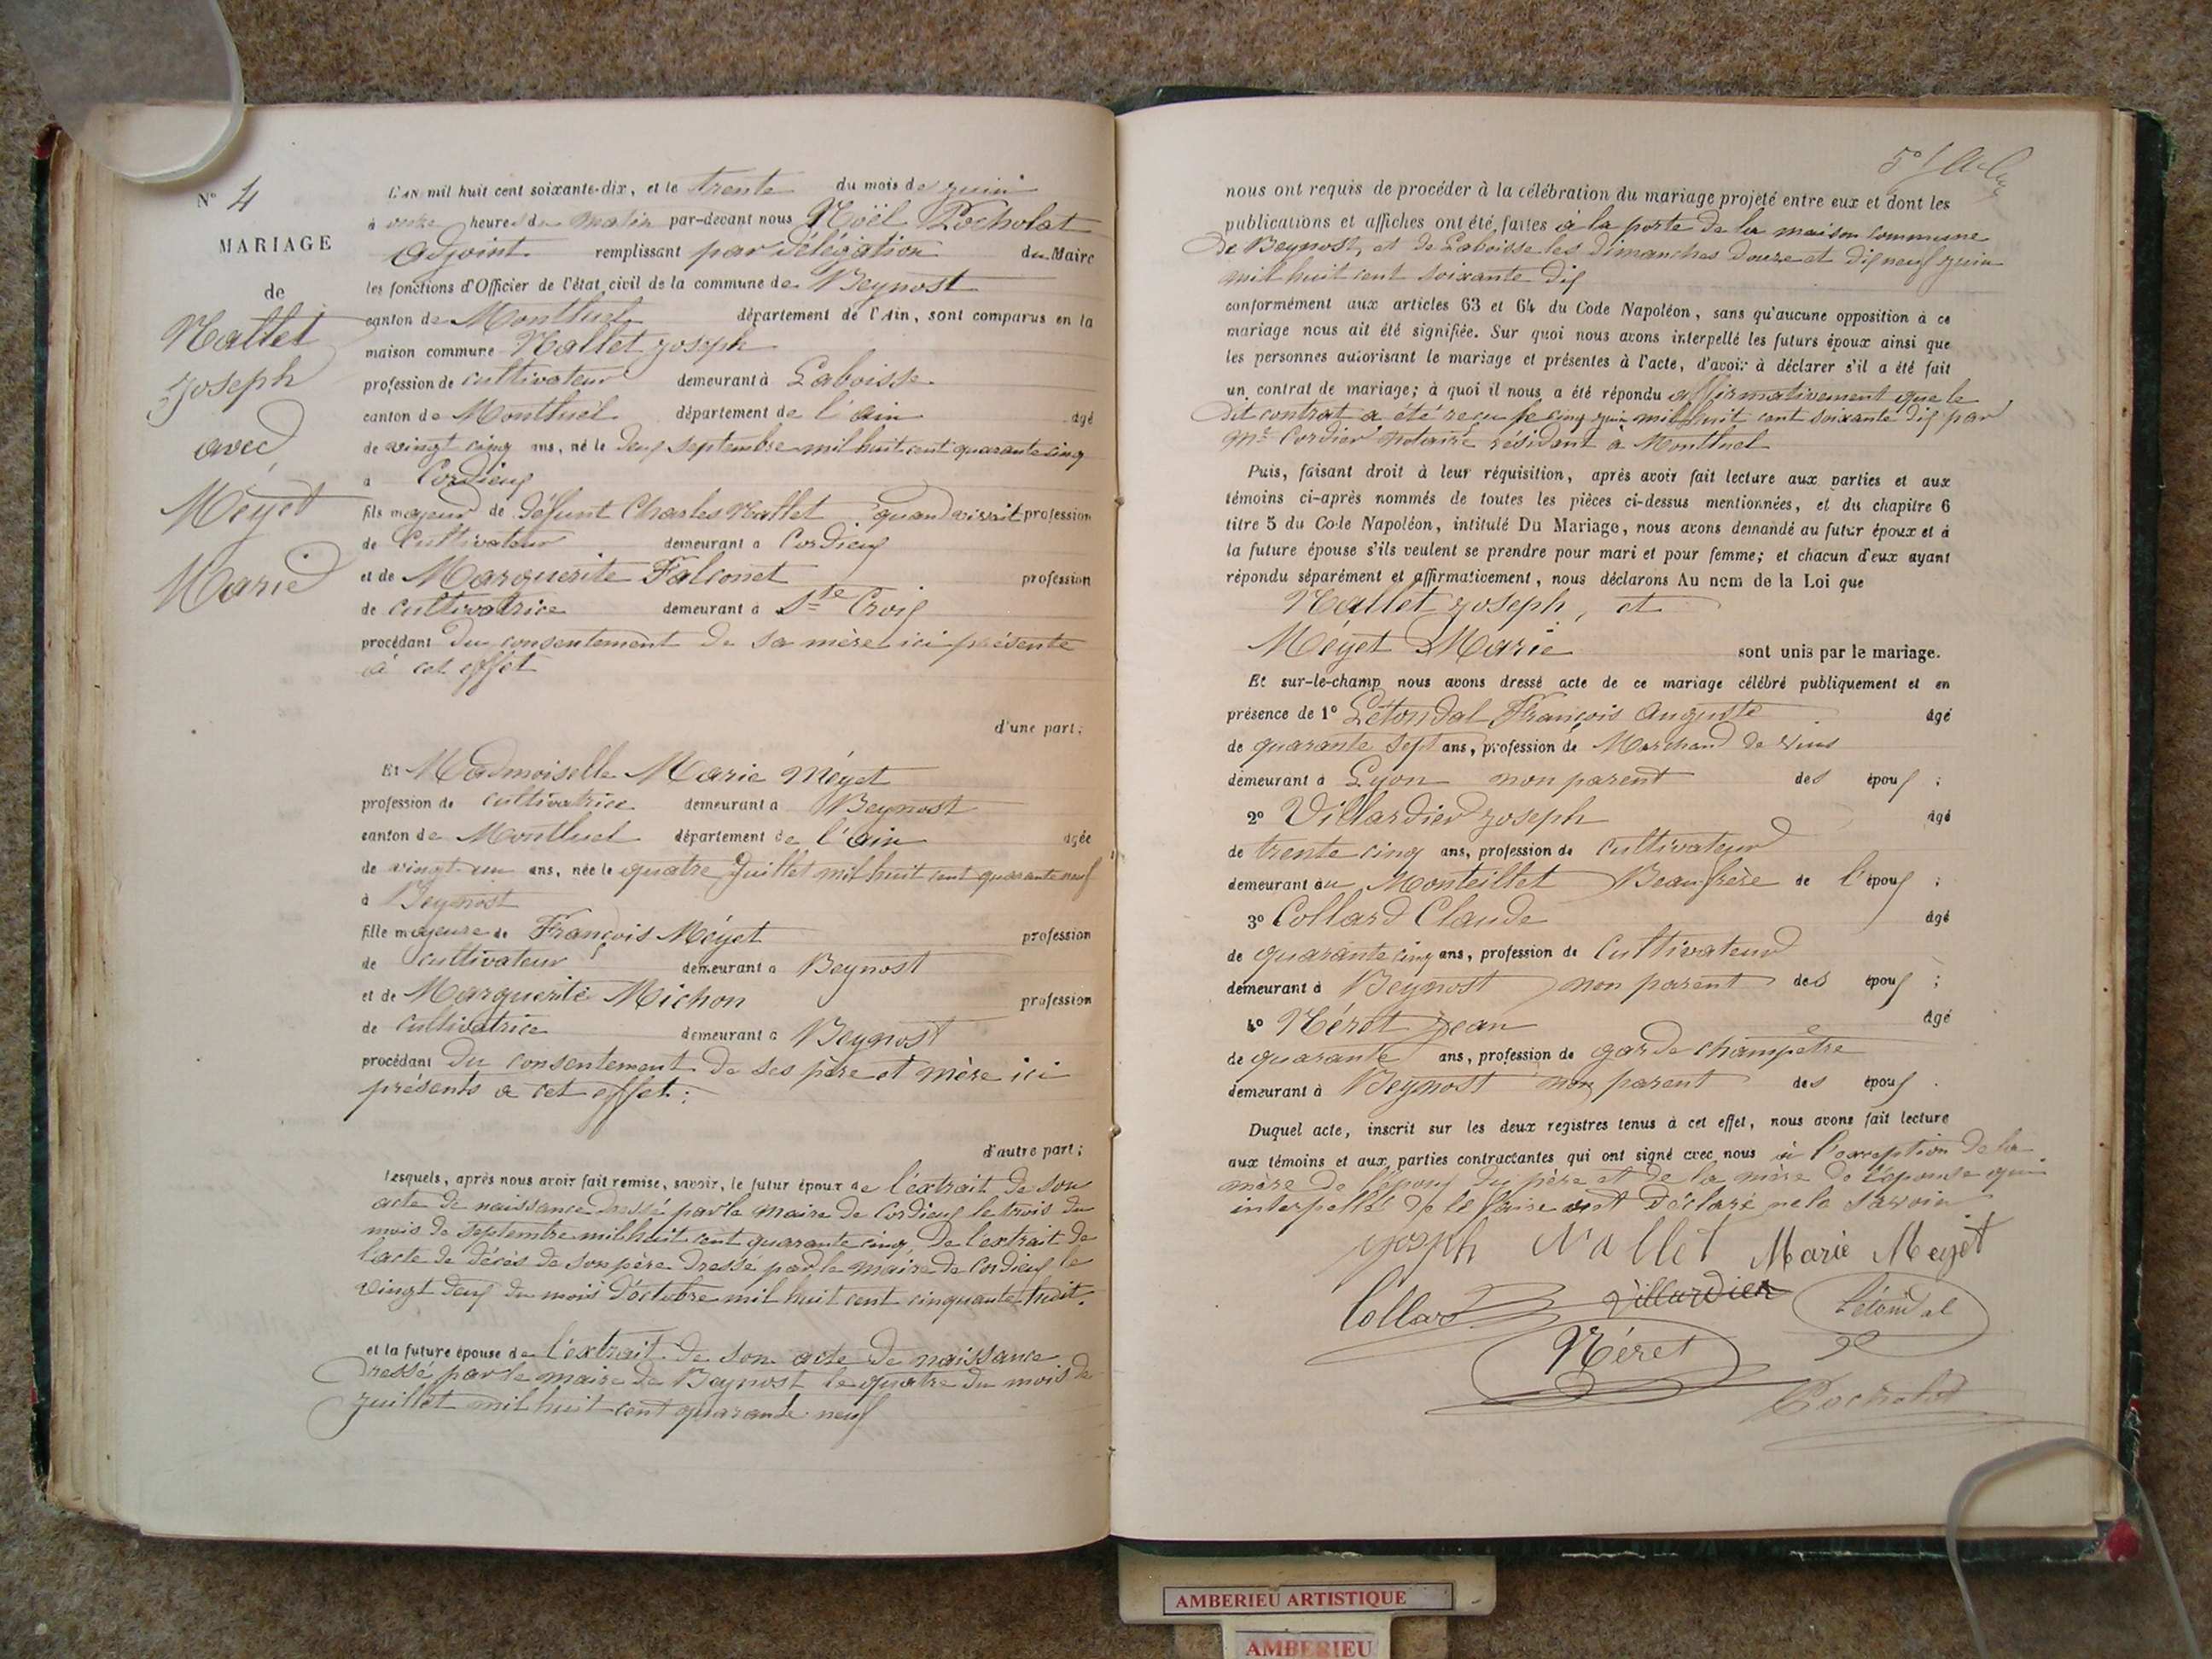 N° 4
MARIAGE
de
Nallet
Joseph
avec
Méyet
Marie
L'AN mil huit cent soixante-dix, et le trente du mois de juin
à onze heures du matin par-devant nous Noël Pocholat
adjoint remplissant par délégation du Maire
les fonctions d'Officier de l'état civil de la commune de Beynost
canton de Montluel département de l'Ain, sont comparus en la
maison commune Nallet joseph
profession de cultivateur demeurant à Laboisse
canton de Montluel département de l'ain âgé
de vingt cinq ans, né le deux septembre mil huit cent quarante cinq
à Cordieux
fils majeur de défunt Charles Nallet quand vivait profession
de Cultivateur demeurant à Cordieux
et de Marguerite Falconet profession
de cultivatrice demeurant à Ste Croix
procédant du consentement de sa mère ici présente
à cet effet
d'une part;
Et Madmoiselle Marie Méyet
profession de cultivatrice demeurant à Beynost
canton de Montluel département de l'ain âgée
de vingt-un ans, née le quatre Juillet mil huit cent quarante neuf
à Beynost
fille majeure de François Méyet profession
de Cultivateur demeurant à Beynost
et de Marguerite Michon profession
de cultivatrice demeurant à Beynost
procédant du consentement de ses père et mère ici
présents a cet effet;
d'autre part;
Lesquels, après nous avoir fait remise, savoir, le futur époux de l'extrait de son
acte de naissance dressé par le maire de Cordieux le trois du
mois de septembre mil huit cent quarante cinq, De l'extrait de
l'acte de décès de son père dressé par le maire de Cordieux le
vingt deux du mois d'octobre mil huit cent cinquante huit.
et la future épouse de l'extrait de son acte de naissance
dressé par le maire de Beynost le quatre du mois de
juillet mil huit cent quarante neuf
nous ont requis de procéder à la célébration du mariage projeté entre eux et dont les
publications et affiches ont été faites à la porte de la maison commune
de Beynost, et de Laboisse les dimanches douze et dix neuf juin
mil huit cent soixante dix
conformément aux articles 63 et 64 du Code Napoléon, sans qu'aucune opposition à ce
mariage nous ait été signifiée. Sur quoi nous avons interpellé les futurs époux ainsi que
les personnes autorisant le mariage et présentes à l'acte, d'avoir à déclarer s'il a été fait
un contrat de mariage; à quoi il nous a été répondu affirmativement que le
dit contrat a été reçu le cinq juin mil huit cent soixante dix par
Me Cordier notaire résidant a Montluel
Puis, faisant droit à leur réquisition, après avoir fait lecture aux parties et aux
témoins ci-après nommés de toutes les pièces ci-dessus mentionnées, et du chapitre 6
titre 5 du Code Napoléon, intitulé Du Mariage, nous avons demandé au futur époux et à
la future épouse s'ils veulent se prendre pour mari et pour femme; et chacun d'eux ayant
répondu séparément et affirmativement, nous déclarons Au nom de la Loi que
Nallet joseph, et
Méyet Marie sont unis par le mariage.
Et sur-le-champ nous avons dressé acte de ce mariage célébré publiquement et en
présence de 1° Létondal François Auguste âgé
de quarante sept ans, profession de Marchand de vins
demeurant à Lyon non parent des époux;
2° Villardier joseph âgé
de trente cinq ans, profession de cultivateur
demeurant au Monteillet Beau frère de l'époux;
3° Collard Claude âgé
de quarante cinq ans, profession de Cultivateur
demeurant à Beynost non parent des époux;
4° Néret Jean âgé
de quarante ans, profession de garde champêtre
demeurant à Beynost non parent des époux.
Duquel acte, inscrit sur les deux registres tenus à cet effet, nous avons fait lecture
aux témoins et aux parties contractantes qui ont signé avec nous à l'exception de la
mère de l'époux du père et de la mère de l'épouse qui
interpellés de le faire ont déclaré ne le savoir
joseph Nallet Marie Meyet
Collard Villardier Létondal
Néret
Pocholat
AMBERIEU ARTISTIQUE
AMBERIEU